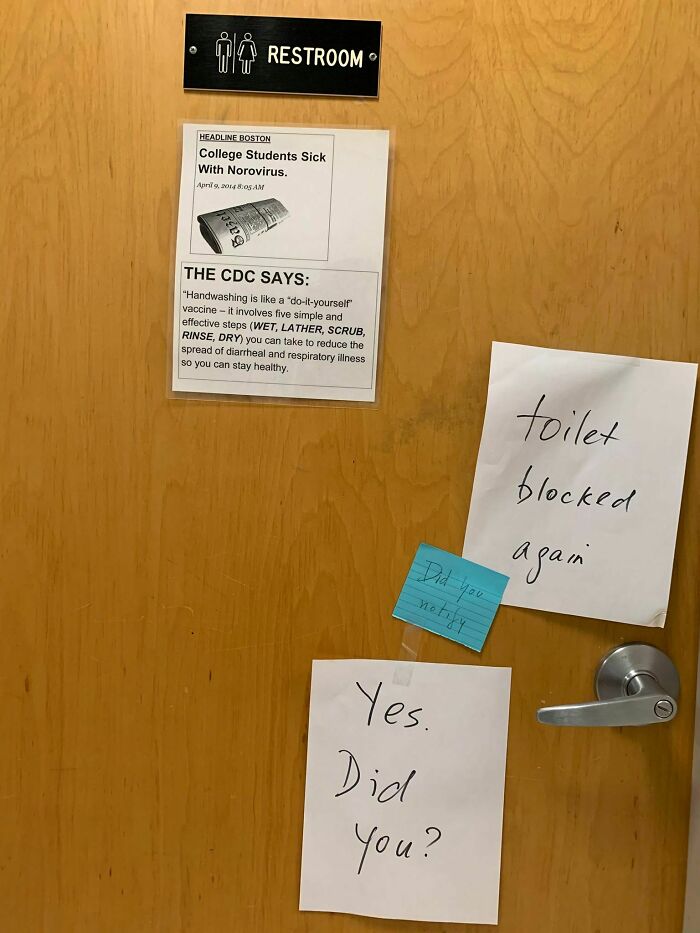 RESTROOM
HEADLINE BOSTON
College Students Sick
With Norovirus.
April 9, 2014 8:05 AM
THE CDC SAYS:
"Handwashing is like a "do-it-yourself"
vaccine – it involves five simple and
effective steps (WET, LATHER, SCRUB,
RINSE, DRY) you can take to reduce the
spread of diarrheal and respiratory illness
so you can stay healthy.
toilet
blocked
again
Did you
notify
Yes.
Did
You?